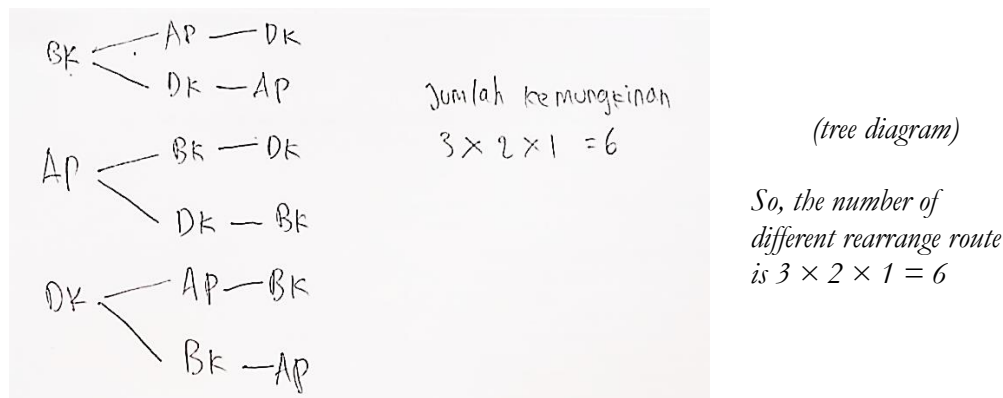 BK AP — DK
DK — AP
AP BK — DK
DK — BK
DK AP — BK
BK — AP
Jumlah kemungkinan
3 × 2 × 1 = 6
(tree diagram)
So, the number of
different rearrange route
is 3 × 2 × 1 = 6